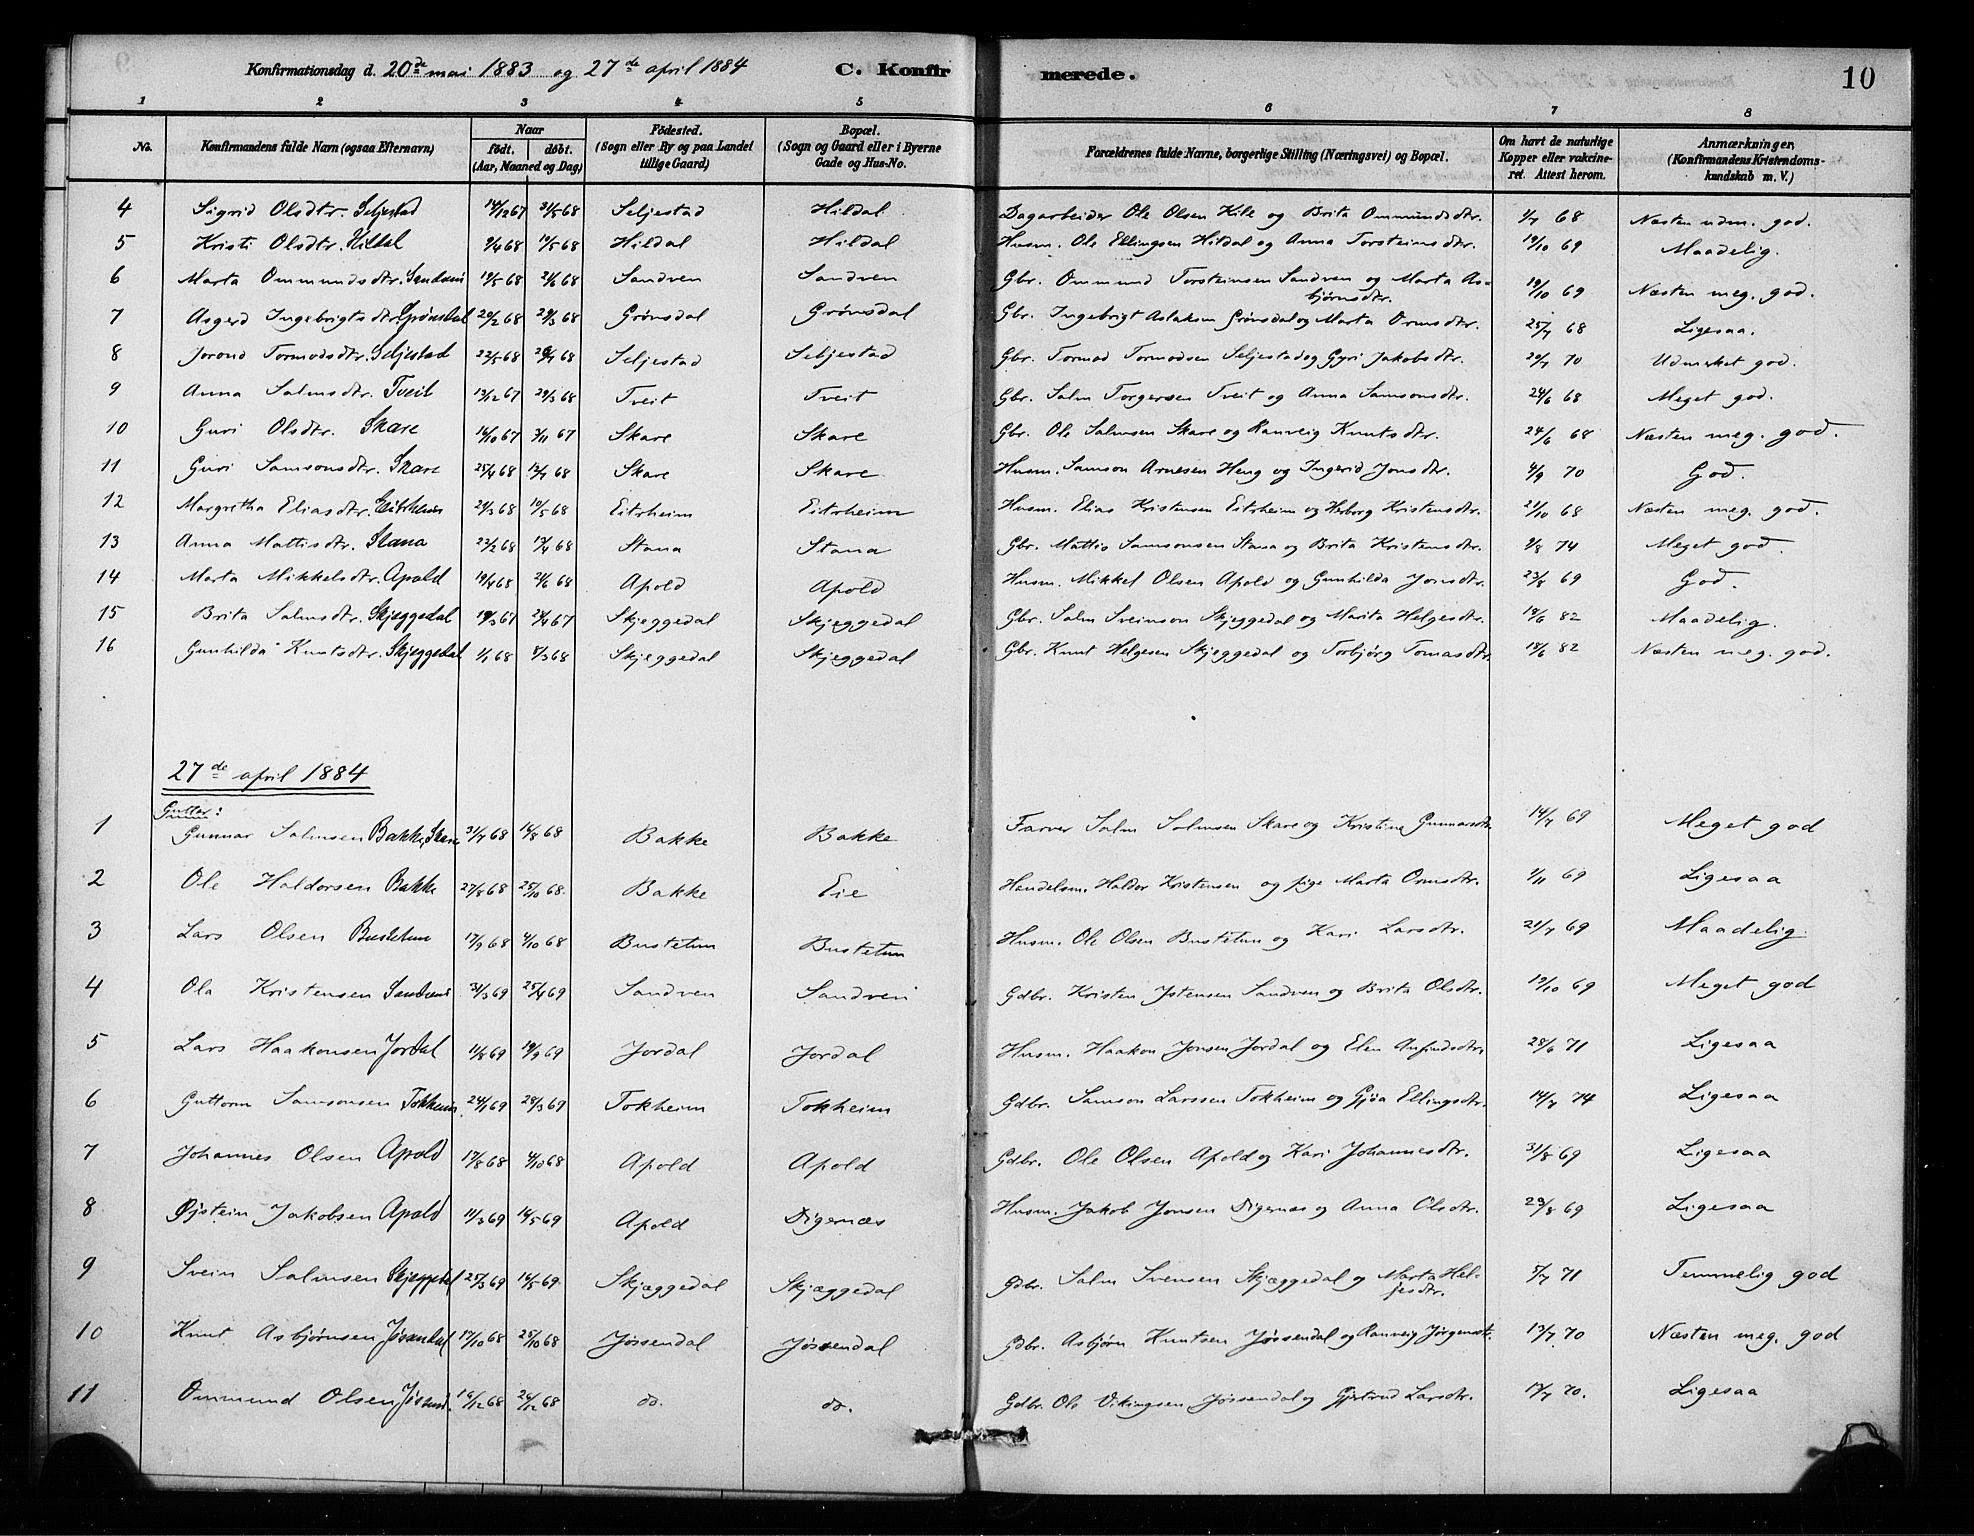 Konfirmationsdag d. 20de mai 1883 og 27de april 1884 C. Konfirmerede. 10
1 2 3 4 5 6 7 8
No. Konfirmandens fulde Navn (ogsaa Efternavn). Naar født. døbt. (Aar, Maaned og Dag) Fødested. (Sogn eller By og paa Landet tillige Gaard) Bopæl. (Sogn og Gaard eller i Byerne Gade og Hus-No. Forældrenes fulde Navne, borgerlige Stilling (Næringsvei) og Bopæl. Om havt de naturlige Kopper eller vakcineret. Attest herom. Anmærkninger. (Konfirmandens Kristendomskundskab m. V.)
4 Sigrid Olsdtr. Seljestad 14/12 67 31/5 68 Seljestad Hildal Dagarbeider Ole Olsen Kile og Brita Ommundsdtr. 1/7 68 Næsten udm. god.
5 Kristi Olsdtr. Hildal 9/4 68 10/5 68 Hildal Hildal Husm. Ole Ellingsen Hildal og Anna Torsteinsdtr. 19/10 69 Maadelig.
6 Marta Ommundsdtr. Sandven 19/5 68 21/6 68 Sandven Sandven Gbr. Ommund Torsteinsen Sandven og Marta Asbjørnsdtr. 19/10 69 Næsten meg. god.
7 Asgerd Ingebrigtsdtr. Grønsdal 20/2 68 29/3 68 Grønsdal Grønsdal Gbr. Ingebrigt Aslaksen Grønsdal og Marta Ormsdtr. 25/7 68 Ligesaa.
8 Jorond Tormodsdtr. Seljestad 22/5 68 68 Seljestad Seljestad Gbr. Tormod Tormodsen Seljestad og Gyri Jakobsdtr. 20/7 70 Udmerket god.
9 Anna Salmsdtr. Tveit 13/12 67 29/3 68 Tveit Tveit Gbr. Salm Torgersen Tveit og Anna Samsonsdtr. 24/6 68 Meget god.
10 Guri Olsdtr. Skare 16/10 67 3/11 67 Skare Skare Gbr. Ole Salmsen Skare og Ranveig Knutsdtr. 24/6 68 Næsten meg. god.
11 Guri Samsonsdtr. Skare 25/4 68 68 Skare Skare Husm. Samson Arnesen Heng og Ingerid Jonsdtr. 4/9 70 God.
12 Margretha Eliasdtr. Eitrheim 24/3 68 10/5 68 Eitrheim Eitrheim Husm. Elias Kristensen Eitrheim og Herborg Kristensdtr. 21/10 68 Næsten meg. god.
13 Anna Mattisdtr. Stana 22/2 68 13/4 68 Stana Stana Gbr. Mattis Samsonsen Stana og Brita Kristensdtr. 74 Meget god.
14 Marta Mikkelsdtr. Apold 19/4 68 21/6 68 Apold Apold Husm. Mikkel Olsen Apold og Gunhilda Jonsdtr. 23/8 69 God.
15 Brita Salmsdtr. Skjæggedal 19/3 67 67 Skjeggedal Skjeggedal Gbr. Salm Sveinson Skjeggedal og Marita Helgesdtr. 18/6 82 Maadelig.
16 Gunhilda Knutsdtr. Skjeggedal 1/1 68 8/3 68 Skjeggedal Skjeggedal Gbr. Knut Helgesen Skjeggedal og Torbjørg Tomasdtr. 18/6 82 Næsten meg. god.
27de april 1884
Gutter:
1 Gunnar Salmsen Bakke, Skare 31/7 68 16/8 68 Bakke Bakke Farver Salm Salmsen Skare og Kristine Gunnarsdtr. 14/7 69 Meget god
2 Ole Haldorsen Bakke 27/8 68 25/10 68 Bakke Eie Handelsm. Haldor Kristensen og pige Marta Ormsdtr. 1/11 69 Ligesaa
3 Lars Olsen Bustetun 17/9 68 4/10 68 Bustetun Bustetun Husm. Ole Olsen Bustetun og Kari Larsdtr. 21/7 69 Maadelig
4 Ola Kristensen Sandven 31/3 69 25/4 69 Sandven Sandven Gdbr. Kristen Istensen Sandven og Brita Olsdtr. 19/10 69 Meget god
5 Lars Haakonsen Jordal 11/8 69 19/9 69 Jordal Jordal Husm. Haakon Jonsen Jordal og Elen Anfindsdtr. 28/6 71 Ligesaa
6 Guttorm Samsonsen Tokheim 24/1 69 28/3 69 Tokheim Tokheim Gdbr. Samson Larssen Tokheim og Gjøa Ellingsdtr. 14/7 74 Ligesaa
7 Johannes Olsen Apold 17/8 68 4/10 68 Apold Apold Gdbr. Ole Olsen Apold og Kari Johannesdtr. 31/8 69 Ligesaa
8 Øistein Jakobsen Apold 11/3 69 16/5 69 Apold Digernæs Husm. Jakob Jonsen Digernæs og Anna Olsdtr. 23/8 69 Ligesaa
9 Svein Salmsen Skjæggedal 25/3 69 16/5 69 Skjæggedal Skjæggedal Gdbr. Salm Svensen Skjæggedal og Marta Helgesdtr. 5/7 71 Temmelig god
10 Knut Asbjørnsen Jøssendal 17/10 68 25/10 68 Jøssendal Jøssendal Gdbr. Asbjørn Knutsen Jøssendal og Ranveig Jørgensdtr. 13/7 70 Næsten meg. god
11 Ommund Olsen Jøssend. 16/12 68 26/12 68 do. do. Gdbr. Ole Vikingsen Jøssendal og Gjertrud Larsdtr. 13/7 70. Ligesaa